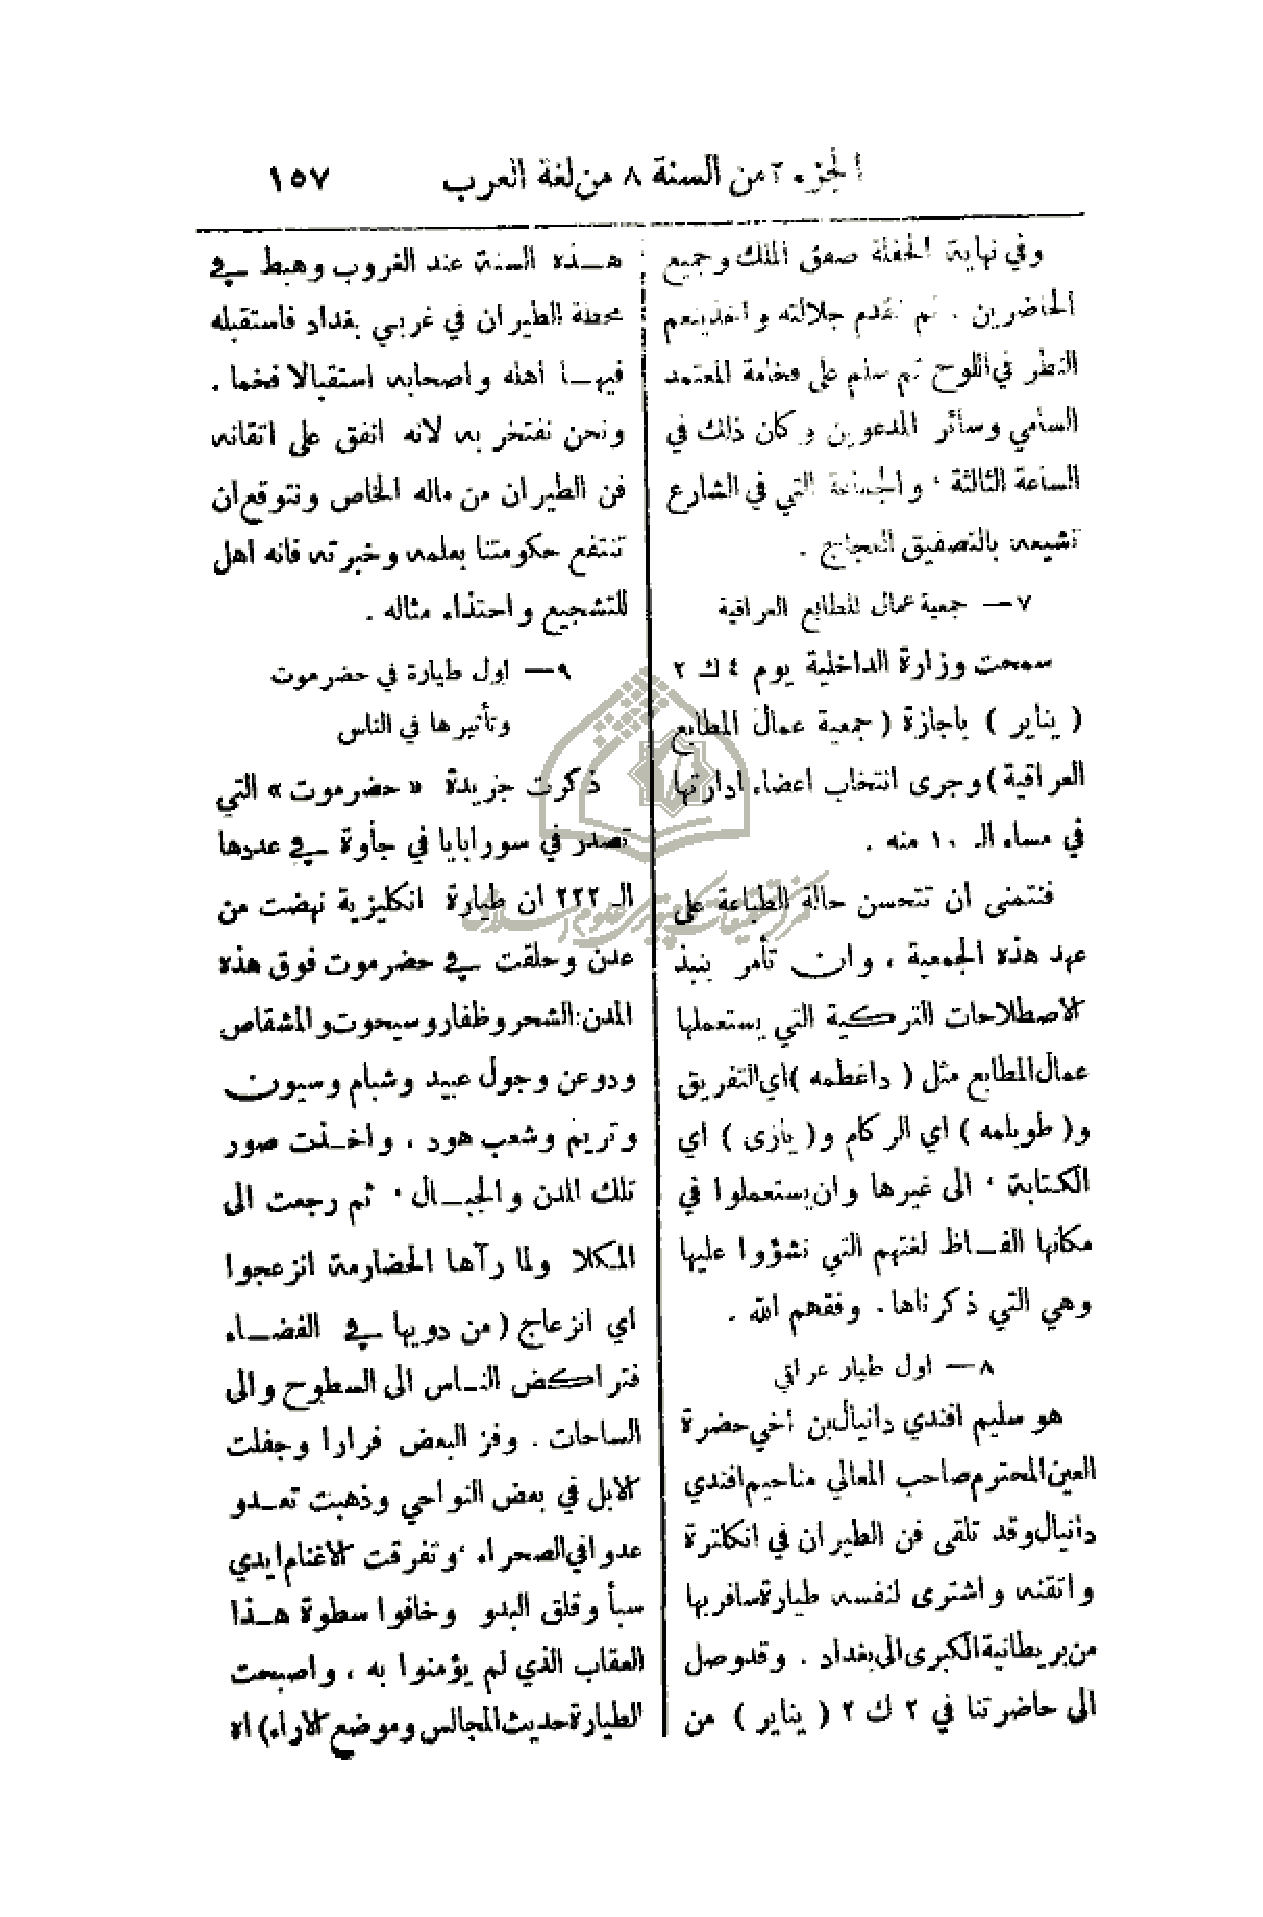 الجزء ٢ من السنة ٨ من لغة العرب ١٥٧
وفي نهاية الحفلة صفق الملك وجميع
الحاضرين . ثم تقدم جلالته واخذ ينعم
النظر في اللوح ثم سلم على فخامة المعتمد
السامي وسائر المدعوين وكان ذلك في
الساعة الثالثة ، والجماعة التي في الشارع
تشيعه بالتصفيق العجاج .
٧ — جمعية عمال المطابع العراقية
سمحت وزارة الداخلية يوم ٤ ك ٢
( يناير ) باجازة ( جمعية عمال المطابع
العراقية ) وجرى انتخاب اعضاء ادارتها
في مساء الـ ١٠ منه .
فنتمنى أن تتحسن حالة الطباعة على
عهد هذه الجمعية ، وان تأمر بنبذ
الاصطلاحات التركية التي يستعملها
عمال المطابع مثل ( داغطمه ) اي التفريق
و( طوبلمه ) اي الركام و( يازى ) اي
الكتابة ، الى غيرها وان يستعملوا في
مكانها الفـاظ لغتهم التي نشؤوا عليها
وهي التي ذكرناها . وفقهم الله .
٨ — اول طيار عراقي
هو سليم افندي دانيال بن أخي حضرة
العين المحترم صاحب المعالي مناحيم افندي
دانيال وقد تلقى فن الطيران في انكلترة
واتقنه واشترى لنفسه طيارة سافر بها
من بريطانية الكبرى الى بغداد . وقد وصل
الى حاضرتنا في ٢ ك ٢ ( يناير ) من
هـذه السنة عند الغروب وهبط في
محطة الطيران في غربي بغداد فاستقبله
فيهـا أهله واصحابه استقبالا فخما .
ونحن نفتخر به لانه انفق على اتقانه
فن الطيران من ماله الخاص ونتوقع ان
تنتفع حكومتنا بعلمه وخبرته فانه اهل
للتشجيع واحتذاء مثاله .
٩ — اول طيارة في حضرموت
وتأثيرها في الناس
ذكرت جريدة « حضرموت » التي
تصدر في سورابايا في جأوة في عددها
الـ ٢٢٢ ان طيارة انكليزية نهضت من
عدن وحلقت في حضرموت فوق هذه
المدن : الشحر وظفار وسيحوت والمشقاص
ودوعن وجول عبيد وشبام وسيون
وتريم وشعب هود ، واخـذت صور
تلك المدن والجبـال ، ثم رجعت الى
المكلا ولما رآها الحضارمة انزعجوا
اي انزعاج ( من دويها في الفضـاء
فتراكض النـاس الى السطوح والى
الساحات . وفز البعض فرارا وجفلت
الابل في بعض النواحي وذهبت تعـدو
عدوا في الصحراء ، وتفرقت الاغنام ايدي
سبأ وقلق البدو وخافوا سطوة هـذا
العقاب الذي لم يؤمنوا به ، واصبحت
الطيارة حديث المجالس وموضع الاراء ) اه
مركز تحقيقات كامپيوتري علوم اسلامي